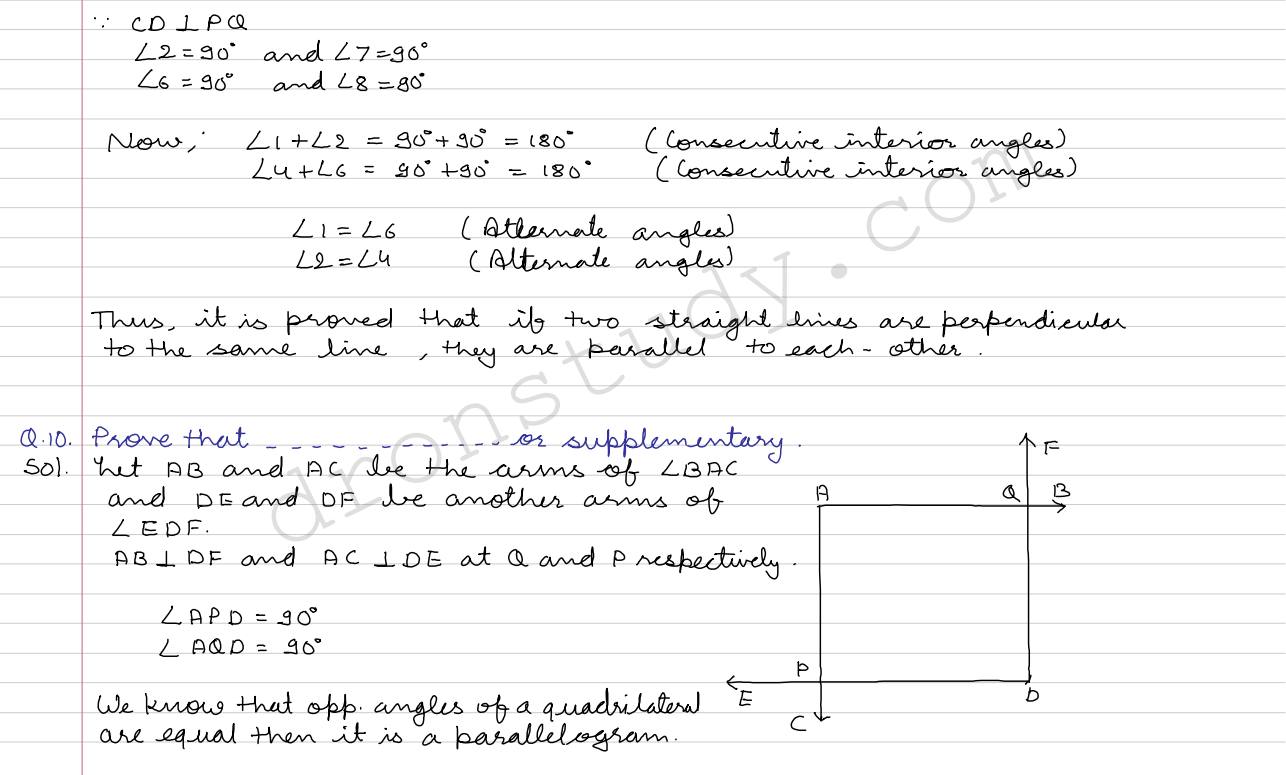 ∵ CD ⊥ PQ
∠2 = 90° and ∠7 = 90°
∠6 = 90° and ∠8 = 90°
Now, ∠1 + ∠2 = 90° + 90° = 180° (Consecutive interior angles)
∠4 + ∠6 = 90° + 90° = 180° (Consecutive interior angles)
∠1 = ∠6 (Alternate angles)
∠2 = ∠4 (Alternate angles)
Thus, it is proved that if two straight lines are perpendicular
to the same line, they are parallel to each-other.
Q.10. Prove that ------------ or supplementary.
Sol. Let AB and AC be the arms of ∠BAC
and DE and DF be another arms of
∠EDF.
AB ⊥ DF and AC ⊥ DE at Q and P respectively.
∠APD = 90°
∠AQD = 90°
We know that opp. angles of a quadrilateral
are equal then it is a parallelogram.
F
A Q B
P
E D
C
dronstudy.com